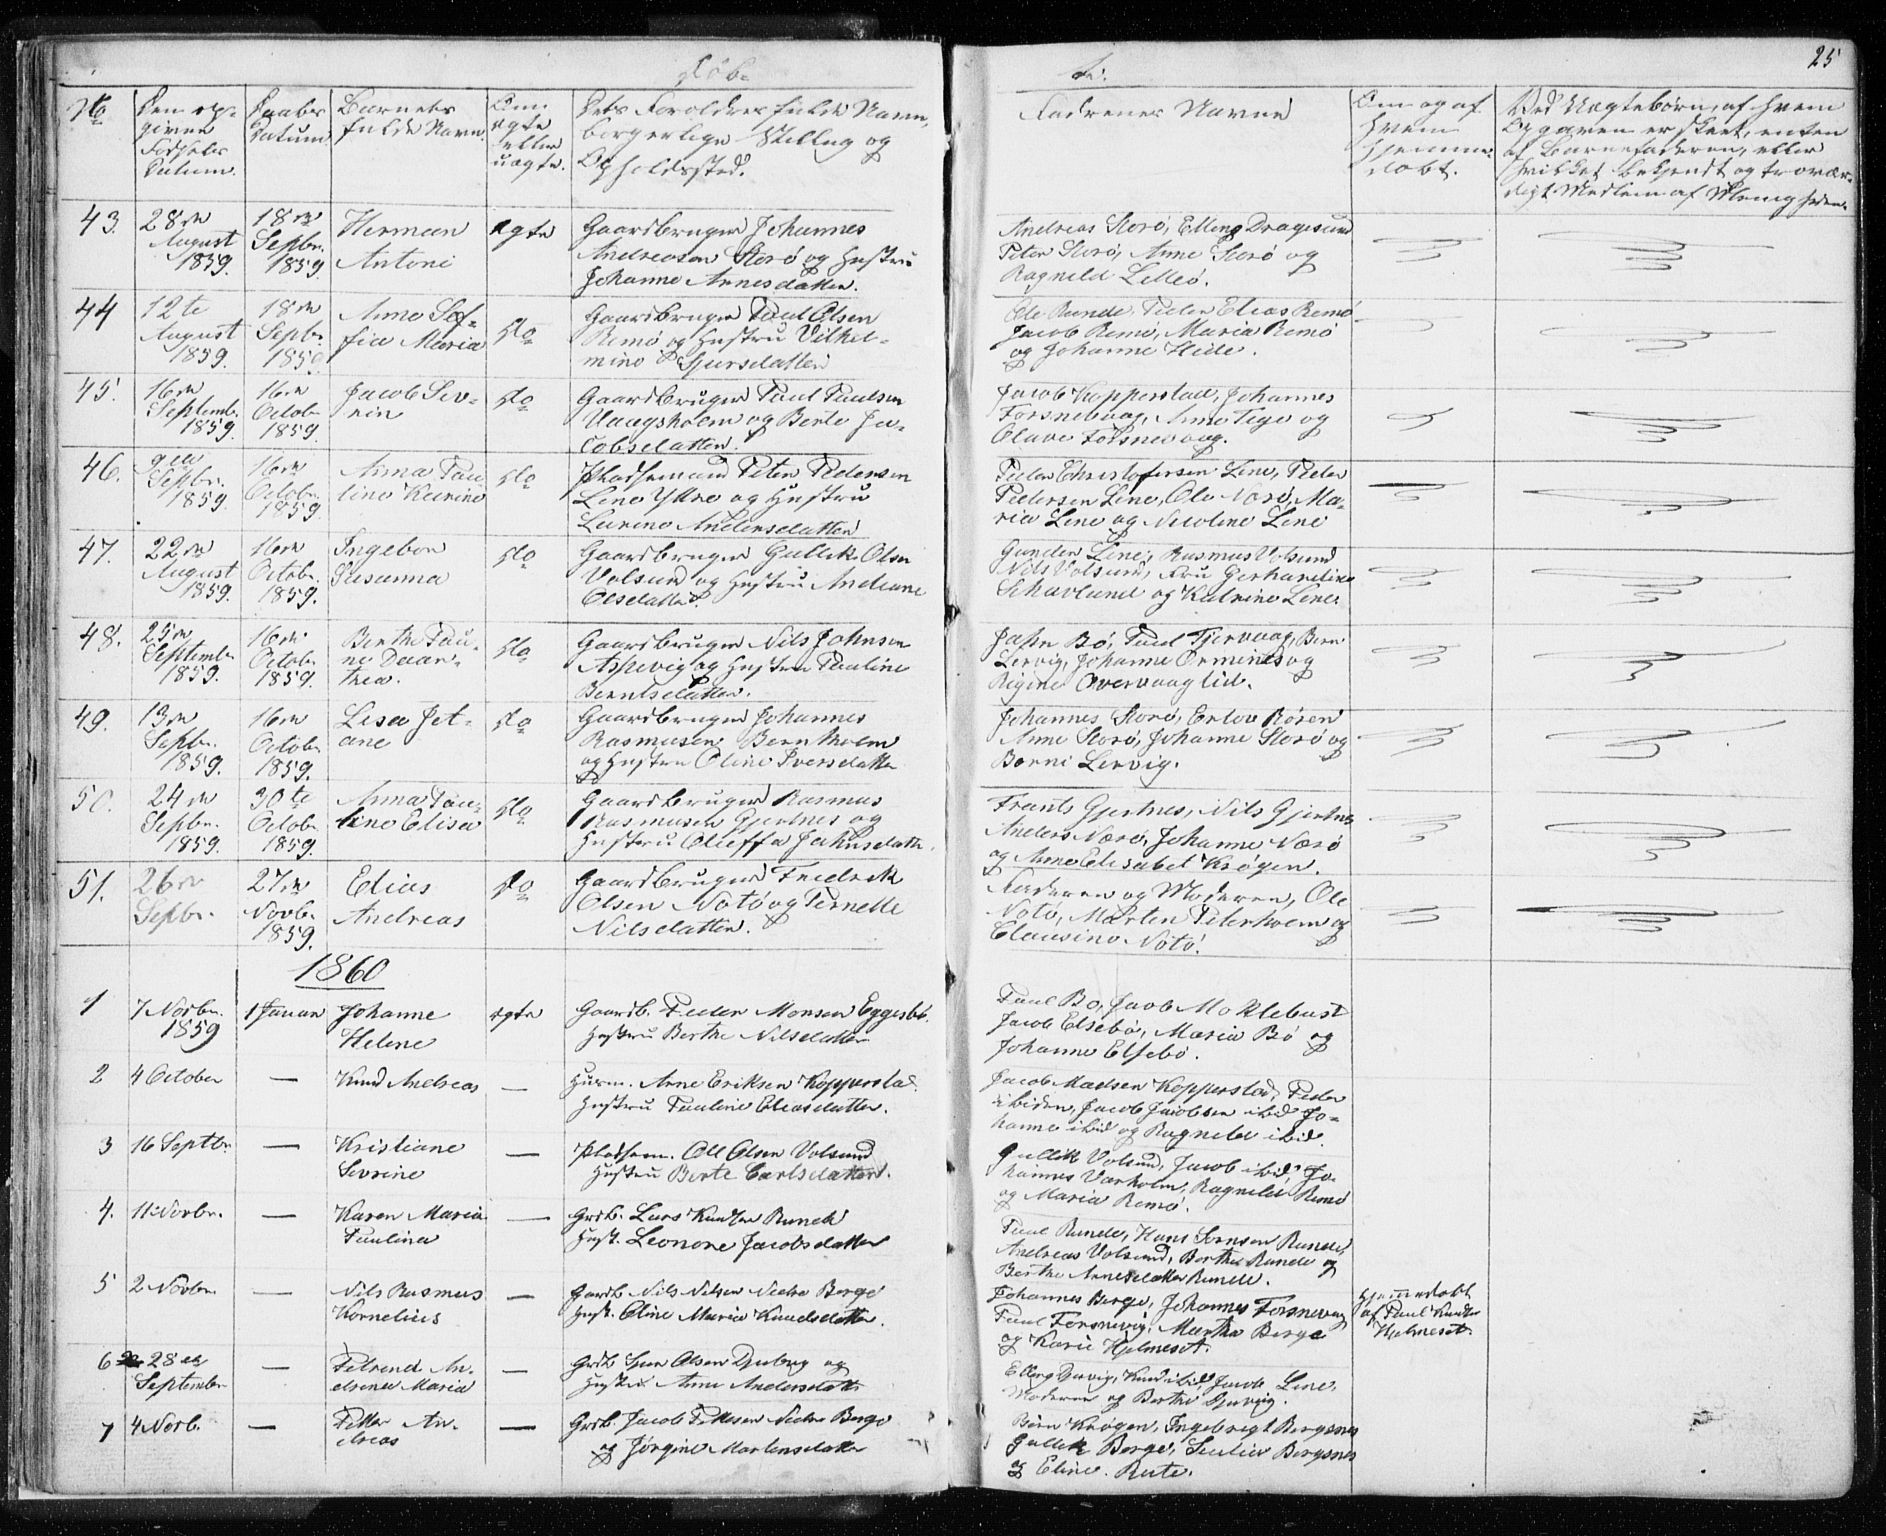 Døb-
te.
25
No
Den op-
givne
Fødsels
Datum.
Daabs
Datum
Barnets
fulde Navn.
Om
ægte
eller
uægte.
Dets Forældres fulde Navn,
borgerlige Stilling og
Opholdssted.
Faddernes Navne
Om og af
hvem
hjemme-
døbt.
Ved Uægtebørn, af hvem
Opgaven er skeet, enten
af Barnefaderen, eller
hvilket bekjendt og trovær-
digt Medlem af Menigheden.
43.
28de
August
1859.
18de
Septbr.
1859
Herman
Antoni
ægte
Gaardbruger Johannes
Andreasen Storø og Hustru
Johanne Arnesdatter.
Andreas Storø, Elling Dragesund
Peter Storø, Anne Storø og
Ragnild Lilleø.
44
12te
August
1859.
18de
Septbr.
1859.
Anne Sof-
fia Maria
do
Gaardbruger Paul Olsen
Remø og Hustru Vilhel-
mine Sjursdatter
Ole Runde, Peder Elias Remø
Jacob Remø, Maria Remø
og Johanne Heide.
45.
16de
Septembr.
1859.
16de
Octobr.
1859.
Jacob Sev-
rin
do
Gaardbruger Paul Paulsen
Vaagsholm og Berte Ja-
cobsdatter.
Jacob Kopperstad, Johannes
Forsnevaag, Anne Tege og
Olave Forsnevaag.
46.
9de
Septbr.
1859.
16de
Octobr.
1859
Anna Pau-
line Katrine
do
Pladsemand Peter Pedersen
Leine Yttre og Hustru
Larine Andersdatter
Peder Christofersen Leine, Peder
Pedersen Leine, Ole Nærø, Ma-
ria Leine og Nicoline Leine
47.
22de
August
1859.
16de
Octobr.
1859.
Ingebor
Susanna
do
Gaardbruger Gullik Olsen
Volsund og Hustru Andrine
Olsdatter.
Gunder Leine, Rasmus Volsund
Nils Volsund, Fru Gerhardine
Schavland og Katrine Leine.
48.
25de
Septembr.
1859.
16de
Octobr.
1859.
Berthe Pau-
ne Daar-
thea.
do
Gaardbruger Nils Johnsen
Aspevig og Hustru Pauline
Berntsdatter.
John Bø, Paul Tjervaag, Bern
Lervig, Johanne Ormines og
Regine Overvaaglid.
49.
13de
Septbr.
1859.
16de
Octobr.
1859.
Lisa Jet-
ane
do
Gaardbruger Johannes
Rasmusen Bernholm
og Hustru Oline Iversdatter
Johannes Storø, Erlov Røren
Anne Storø, Johanne Storø og
Børni Lervig.
50.
24de
Septbr.
1859.
30te
Octobr.
1859.
Anna Pau-
line Elisa
do
Gaardbruger Rasmus
Rasmusen Gjertnes og
Hustru Olieffa Johnsdatter.
Frants Gjertnes, Nils Gjertnes
Anders Nærø, Johanne Nærø
og Anne Elisabet Krøgen.
51.
26de
Septbr.
27de
Novbr.
1859.
Elias
Andreas
do
Gaardbruger Fredrik
Olsen Notø og Pernelle
Nilsdatter.
Faderen og Moderen, Ole
Notø, Marten Peterholm og
Clausine Notø.
1860
1
7 Novbr.
1859
1 Januar
Johanne
Helene
ægte
Gaardb. Peder Monsen Eggesbø.
Hustru Berthe Nilsdatter
Paul Bø, Jacob Moklebust
Jacob Elsebø, Maria Bø og
Johanne Elsebø.
2
4 October
—
Knud Andreas
—
Husm. Arne Eriksen Kopperstad.
Hustru Pauline Eliasdatter.
Jacob Madsen Kopperstad, Peder
ibidem, Jacob Jacobsen ibid Jo-
hanne ibid og Ragnild ibid.
3
16 Septbr.
—
Kristiane
Sevrine
—
Pladsem. Ole Olsen Volsund
Hustru Berte Carlsdatter.
Gullik Volsund, Jacob ibid, Jo-
hannes Varholm, Ragnild Remø
og Maria Remø.
4.
11 Novbr.
—
Karen Maria
Paulina
—
Grdb. Lars Knudsen Runde
Hust. Leonore Jacobsdatter
Paul Runde, Hans Sernsen Runde,
Andreas Volsund, Berthe Runde og
Berthe Arnesdatter Runde.
5
2 Novbr.
—
Nils Rasmus
Kornelius
—
Gaardb Nils Nilsen Nedre Berge
Hust. Oline Maria Knudsdatter.
Johannes Berge, Johannes Forsnevaag
Paul Forsnevig, Martha Berge
og Karie Hjelmeset.
Hjemmedøbt
af Paul Knudsen
Hjelmeset
6
28de
September
—
Petrine An-
dsena Maria
—
Grdb Sjur Olsen Djubvig og
Hustru Anne Andersdatter
Elling Djuvig, Knud ibid, Jacob Leine,
Moderen og Berthe Djuvig.
7
4 Novb.
—
Petter An-
dreas
—
Grdb. Jacob Pettersen Nedre Berge
og Jørgine Martensdatter
Bern Krøgen, Ingebrigt Bergsnes
Gullik Berge, Secilia Bergsnes
og Eline Reite.